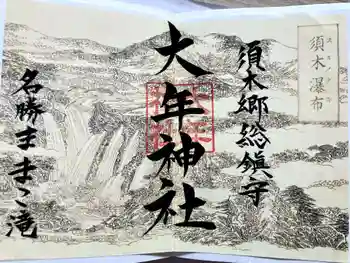 須木瀑布
須木郷総鎮守
大年神社
名勝ままこ滝